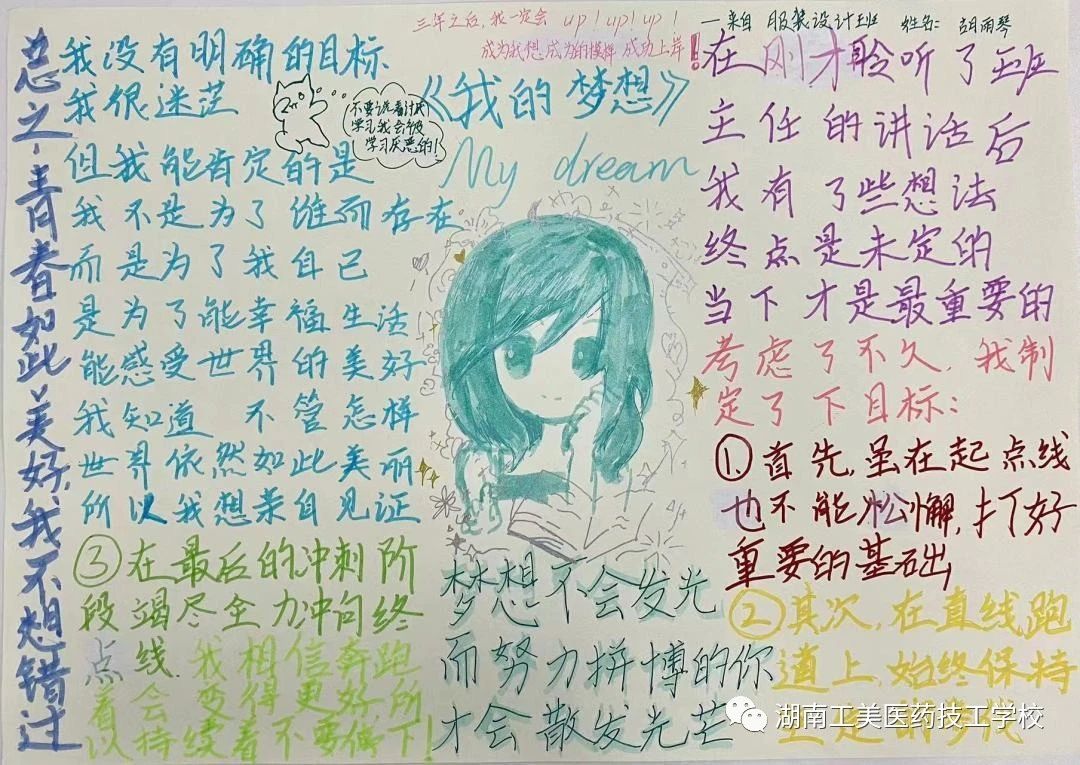 三年之后，我一定会 up！up！up！
成为我想成为的模样 成功上岸！
—来自 服装设计班 姓名：胡雨琴
《我的梦想》
My dream
总之，青春如此美好，我不想错过
我没有明确的目标
我很迷茫
但我能肯定的是
我不是为了谁而存在
而是为了我自己
是为了能幸福生活
能感受世界的美好
我知道 不管怎样
世界依然如此美丽
所以我想亲自见证
学习厌恶的！
在刚才聆听了班
主任的讲话后
我有了些想法
终点是未定的
当下才是最重要的
考虑了不久，我制
定了下目标：
①.首先，虽在起点线
也不能松懈，打好
重要的基础
②其次，在直线跑
道上，始终保持
③在最后的冲刺阶
段竭尽全力冲向终
点线.我相信奔跑
着会变得更好所
以持续着不要停下！
梦想不会发光
而努力拼搏的你
才会散发光芒
湖南工美医药技工学校